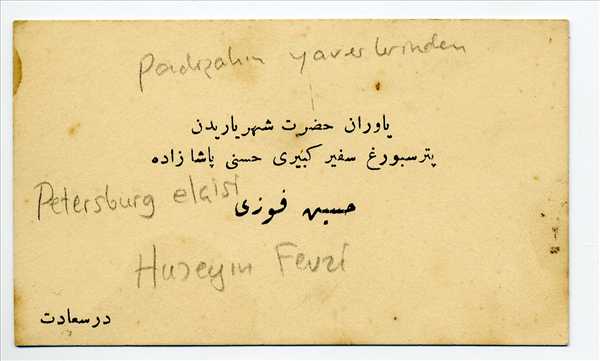 Padişahın yaverlerinden
یاوران حضرت شهریاریدن
پترسبورغ سفیر کبیری حسنی پاشا زاده
Petersburg elçisi
حسین فوزی
Huseyin Fevzi
در سعادت